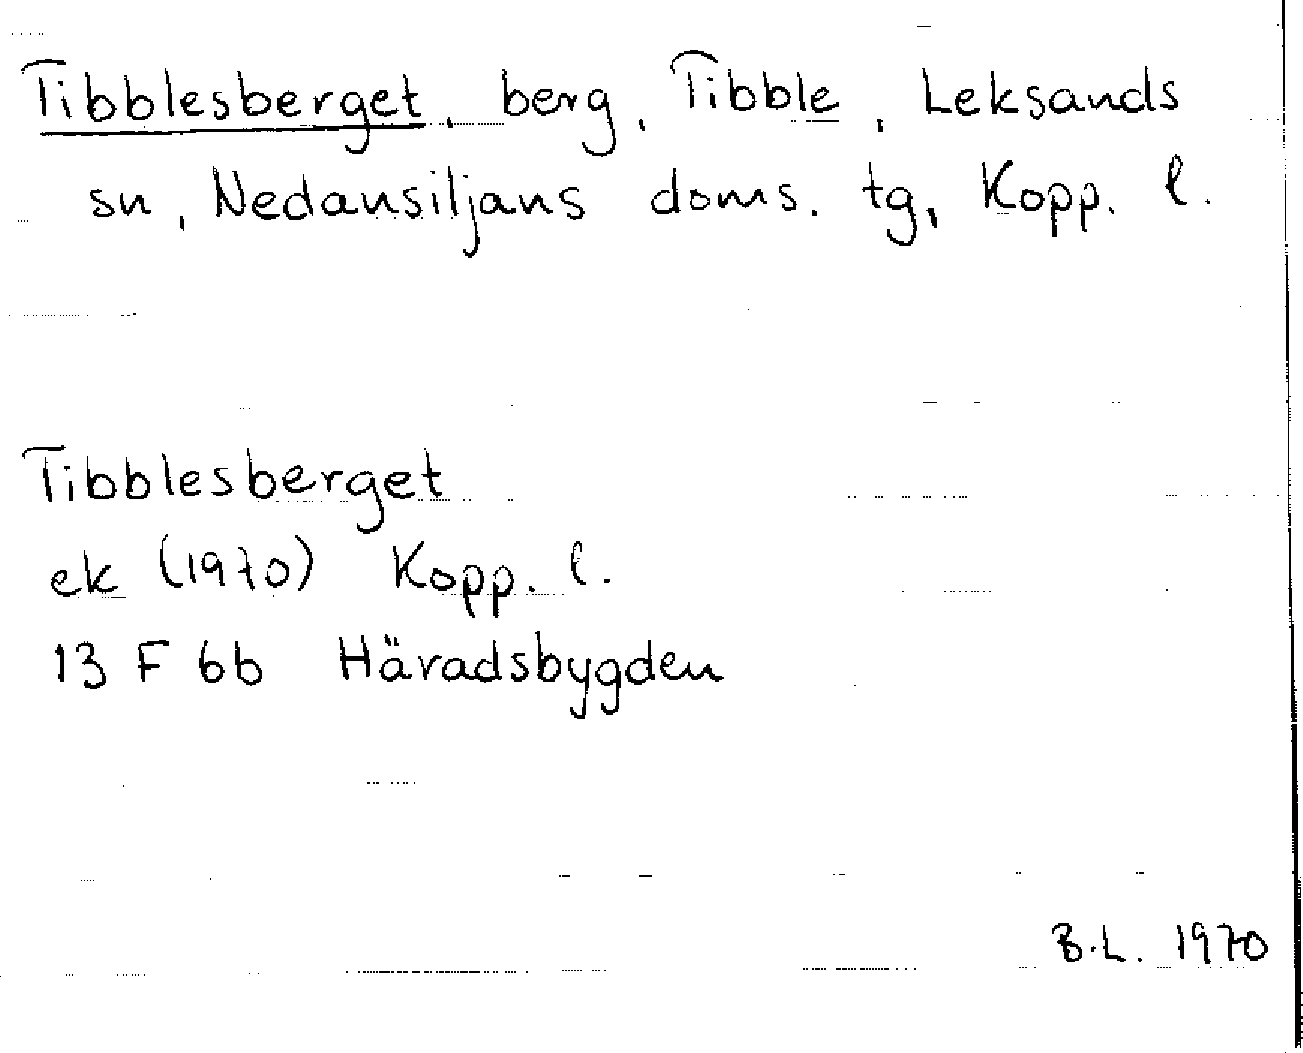 Tibblesberget, berg, Tibble, Leksands
sn, Nedansiljans doms. tg, Kopp. l.
Tibblesberget
ek (1970) Kopp. l.
13 F 6b Häradsbygden
B.L. 1970